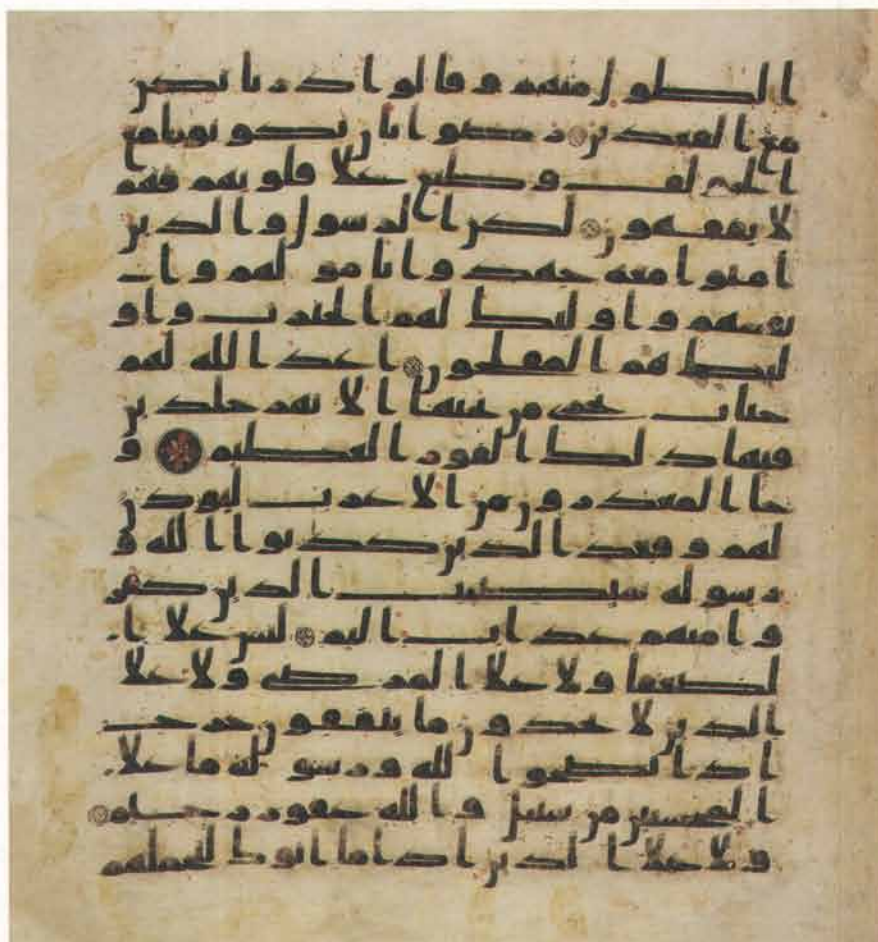 الطول منهم وقالوا ذرنا نكن
مع القعدين رضوا بان يكونوا مع
الخولف وطبع علا قلوبهم فهم
لا يفقهون لكن الرسول والذين
امنوا معه جهدوا بامولهم وا
نفسهم واوليك لهم الخيرت واو
ليك هم المفلحون اعد الله لهم
جنات تجري من تحتها الانهر خلدين
فيها ذلك الفوز العظيم و
جا المعذرون من الاعرب ليوذن
لهم وقعد الذين كذبوا الله و
رسوله سيصيب الذين كفر
وا منهم عذاب اليم ليس علا ا
لضعفا ولا علا المرضى ولا علا
الذين لا يجدون ما ينفقون حرج
اذا نصحوا لله ورسوله ما علا
المحسنين من سبيل والله غفور رحيم
ولا علا الذين اذا ما اتوك لتحملهم